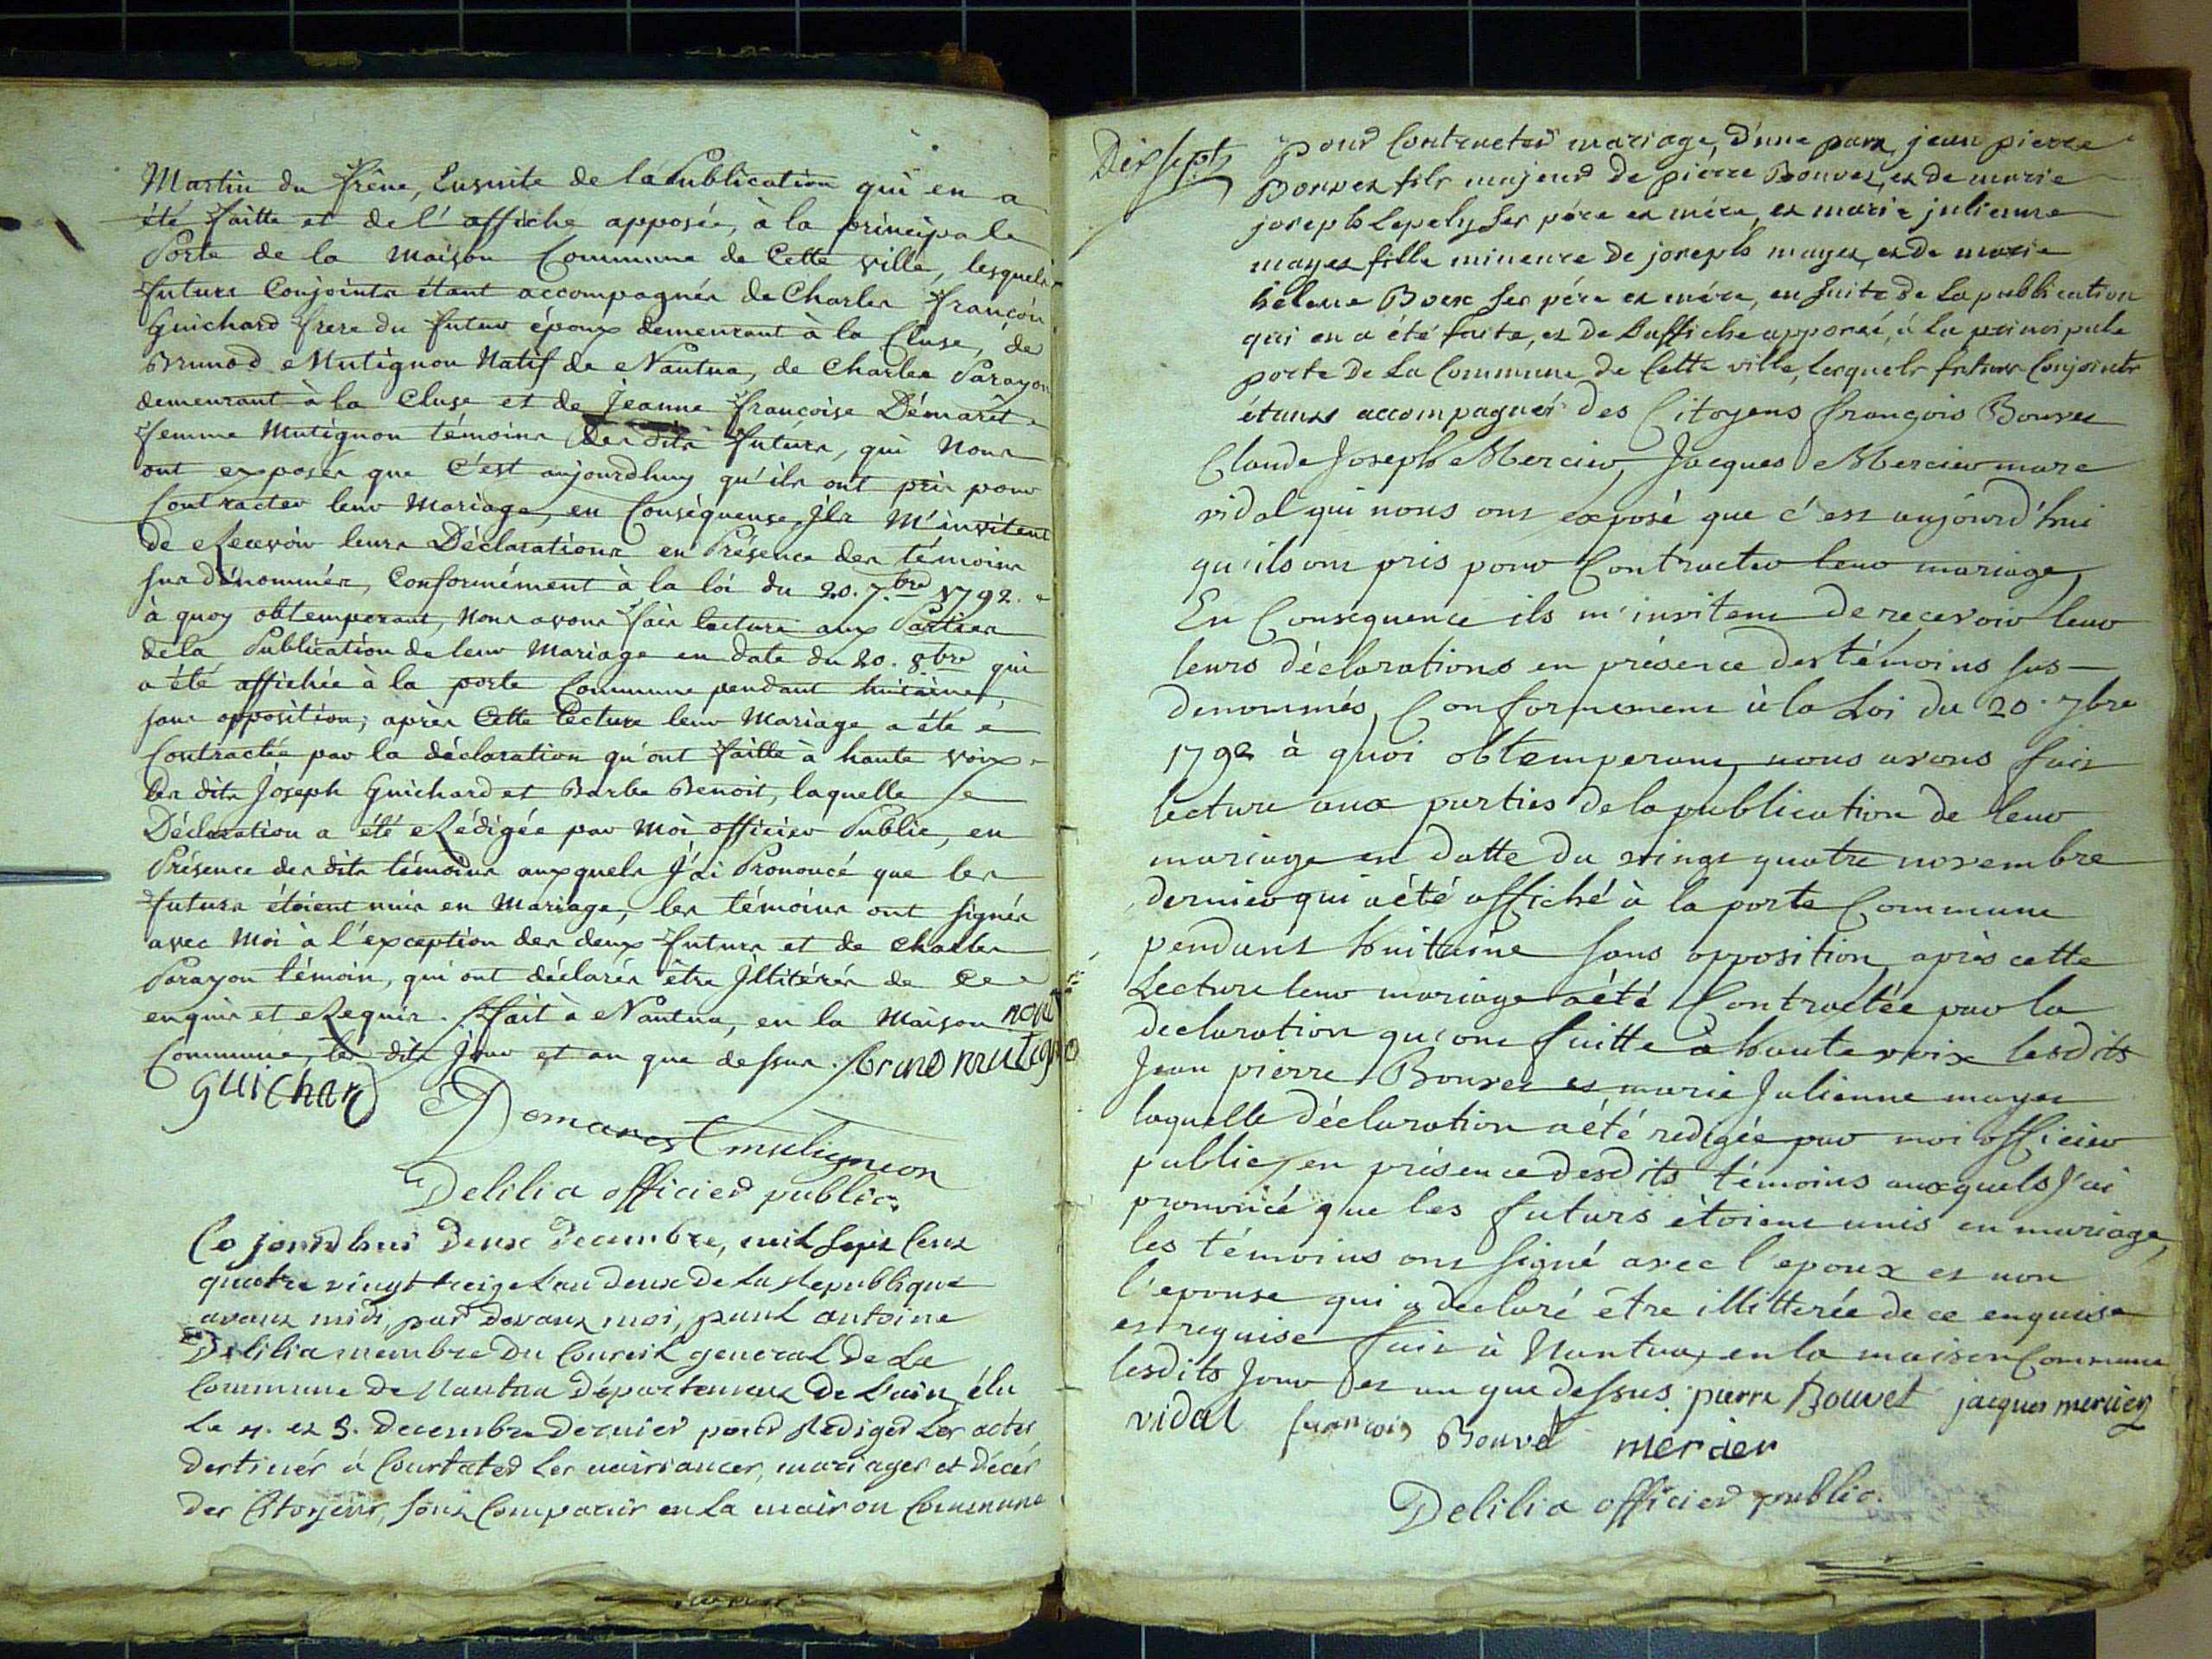 Martin du frêne, Ensuite de la Publication qui en a
été faitte et de l'affiche apposée, à la principale
Porte de la Maison Commune de Cette ville, lesquels
futurs Conjoints étant accompagnés de Charles françois
Guichard frere du futur époux demeurant à la Cluse, de
Brunod Mutignon Natif de Nantua, de Charles Parayon
demeurant à la Cluse et de jeanne françoise Démarêt
femme Mutignon témoins des dits futurs, qui Nous
ont exposés que C'est aujourdhuy qu'ils ont pris pour
Contracter leur Mariage, en Conséquense, jls M'invitent
de Recevoir leurs Déclarations en Présence des témoins
sus dénommés, Conformément à la loi du 20. 7.bre 1792.
à quoy obtemperant, Nous avons fais lecture aux Parties
de la Publication de leur Mariage en date du 20. 8bre qui
a été affichée à la porte Commune pendant huitaine,
sans opposition; après Cette lecture leur Mariage a été
Contractée par la déclaration qu'ont faitte à haute voix
les dits Joseph Guichard et Barbe Benoit, laquelle
Déclaration a été Rédigée par Moi officier Public, en
Présence des dits témoins auxquels J'ai Prononcé que les
futurs étoient unis en Mariage, les témoins ont signés
avec Moi à l'exception des deux futurs et de charles
Parayon témoin, qui ont déclarés être jllitérés de ce
enquis et Requis. fait à Nantua, en la Maison
Commune, les dits jour et an que dessus. Bruno mutigno
guichard
Demarest mutignon
Delilia officier public.
Ce jourdhui deux decembre, mil sept cent
quatre vingt treize L'an deux de La Republique
avant midi, par devant moi, paul antoine
Delilia membre du Conseil general de La
Commune de Nantua Département de L'ain, élu
Le 4. et 5. decembre dernier pour Rediger Les actes
destinés à Constater Les naissances, mariages et décés
des Citoyens, sont Comparus en La maison Commune
Dix sept
pour Contracter mariage, d'une part, jean pierre
Bouvet fils majeur de pierre Bouvet, et de marie
joseph Lepely ses père et mère, et marie julienne
mayet fille mineure de joseph mayet, et de marie
helene Boex ses pére et mére, en suite de La publication
qui en a été faite, et de L'affiche apposée, à La principale
porte de La Commune de Cette ville, Lesquels futurs Conjoints
étants accompagnés des Citoyens françois Bouvet
Claude Joseph Mercier, Jacques Mercier marc
vidal qui nous ont exposé que c'est aujourd'hui
qu'ils ont pris pour Contracter leur mariage,
En Conséquence ils m'invitent de recevoir leur
leurs déclarations en présence des témoins sus-
denommés, Conformement à la Loi du 20. 7bre
1792 à quoi obtemperant, nous avons fait
lecture aux parties de la publication de leur
mariage en datte du vingt quatre novembre
dernier qui a été affiché à la porte Commune
pendant huitaine sans opposition, après cette
Lecture leur mariage a été Contractée par la
declaration qu'ont faitte à haute voix lesdits
Jean pierre Bouvet et marie Julienne mayet
laquelle déclaration a été redigée par moi officier
public, en présence desdits témoins auxquels J'ai
prononcé que les futurs étoient unis en mariage,
les témoins ont signé avec l'epoux et non
l'epouse qui a declaré être illitterée de ce enquise
et requise fait à Nantua, en la maison Commune
lesdits Jour et an que dessus. pierre Bouvet jacques mercier
vidal francois Bouvet mercier
Delilia officier public.